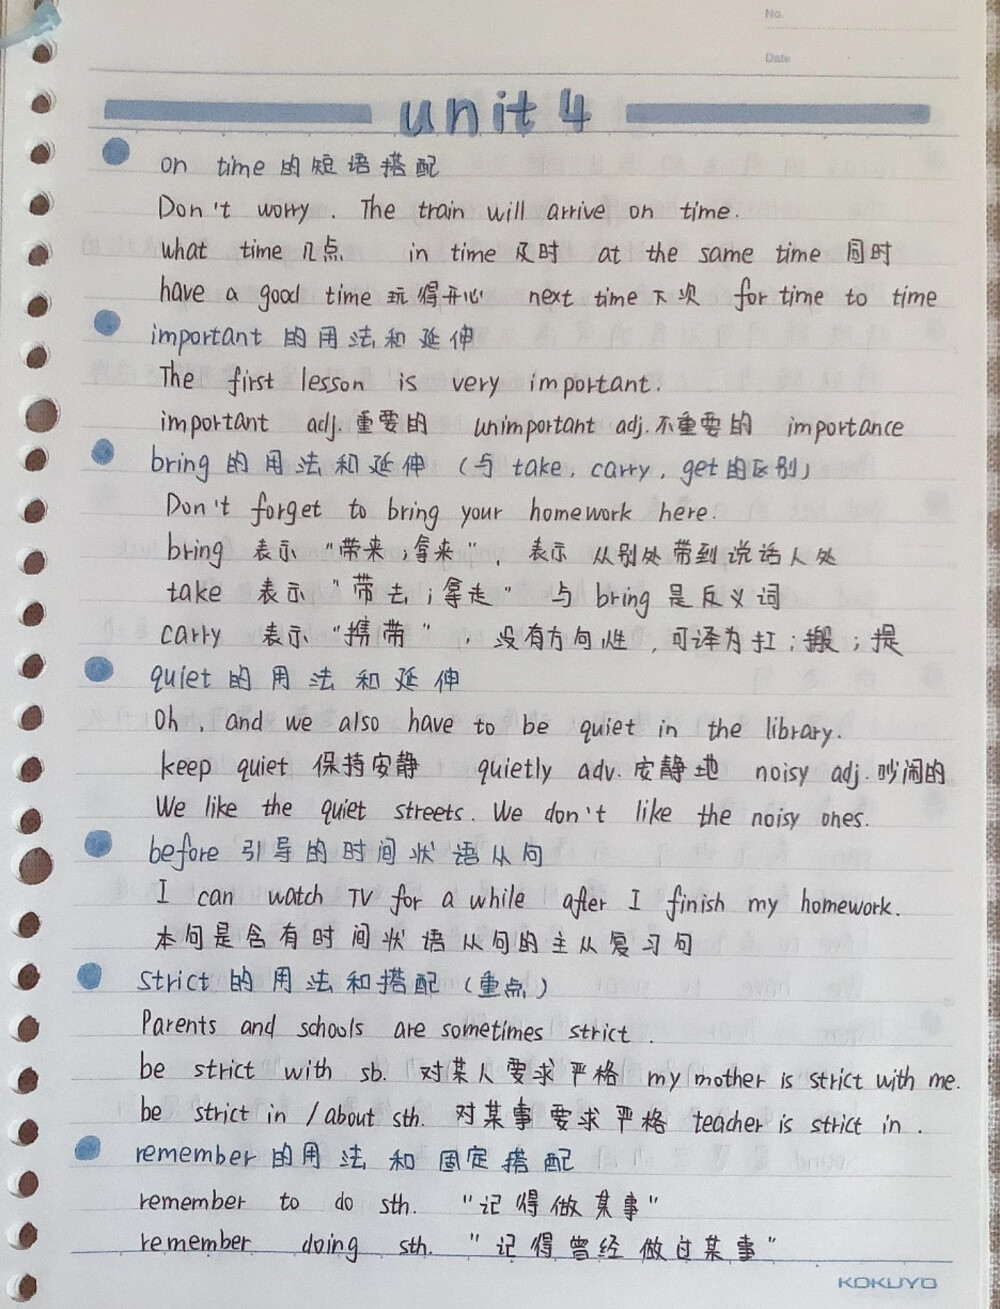 No.
Date
unit 4
on time 的短语搭配
Don't worry. The train will arrive on time.
what time 几点 in time 及时 at the same time 同时
have a good time 玩得开心 next time 下次 for time to time
important 的用法和延伸
The first lesson is very important.
important adj. 重要的 unimportant adj. 不重要的 importance
bring 的用法和延伸 (与 take, carry, get 的区别)
Don't forget to bring your homework here.
bring 表示 "带来;拿来", 表示 从别处带到说话人处
take 表示 "带去;拿走" 与 bring 是反义词
carry 表示 "携带", 没有方向性, 可译为扛;搬;提
quiet 的用法和延伸
Oh, and we also have to be quiet in the library.
keep quiet 保持安静 quietly adv. 安静地 noisy adj. 吵闹的
We like the quiet streets. We don't like the noisy ones.
before 引导的时间状语从句
I can watch TV for a while after I finish my homework.
本句是含有时间状语从句的主从复习句
strict 的用法和搭配 (重点)
Parents and schools are sometimes strict.
be strict with sb. 对某人要求严格 my mother is strict with me.
be strict in / about sth. 对某事要求严格 teacher is strict in.
remember 的用法和固定搭配
remember to do sth. "记得做某事"
remember doing sth. "记得曾经做过某事"
KOKUYO